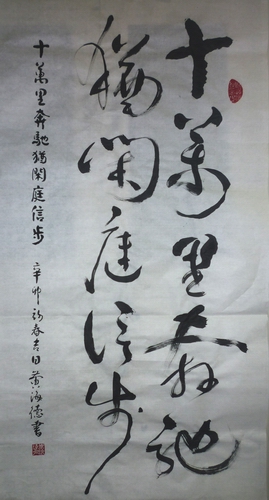 十萬里奔馳
猶閑庭信步
十萬里奔馳猶閑庭信步
辛卯初春吉日黄海德書